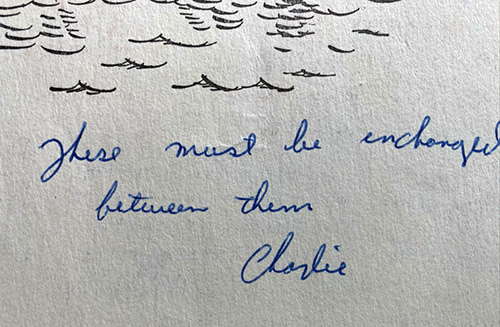 These must be enchanged
between them
Charlie